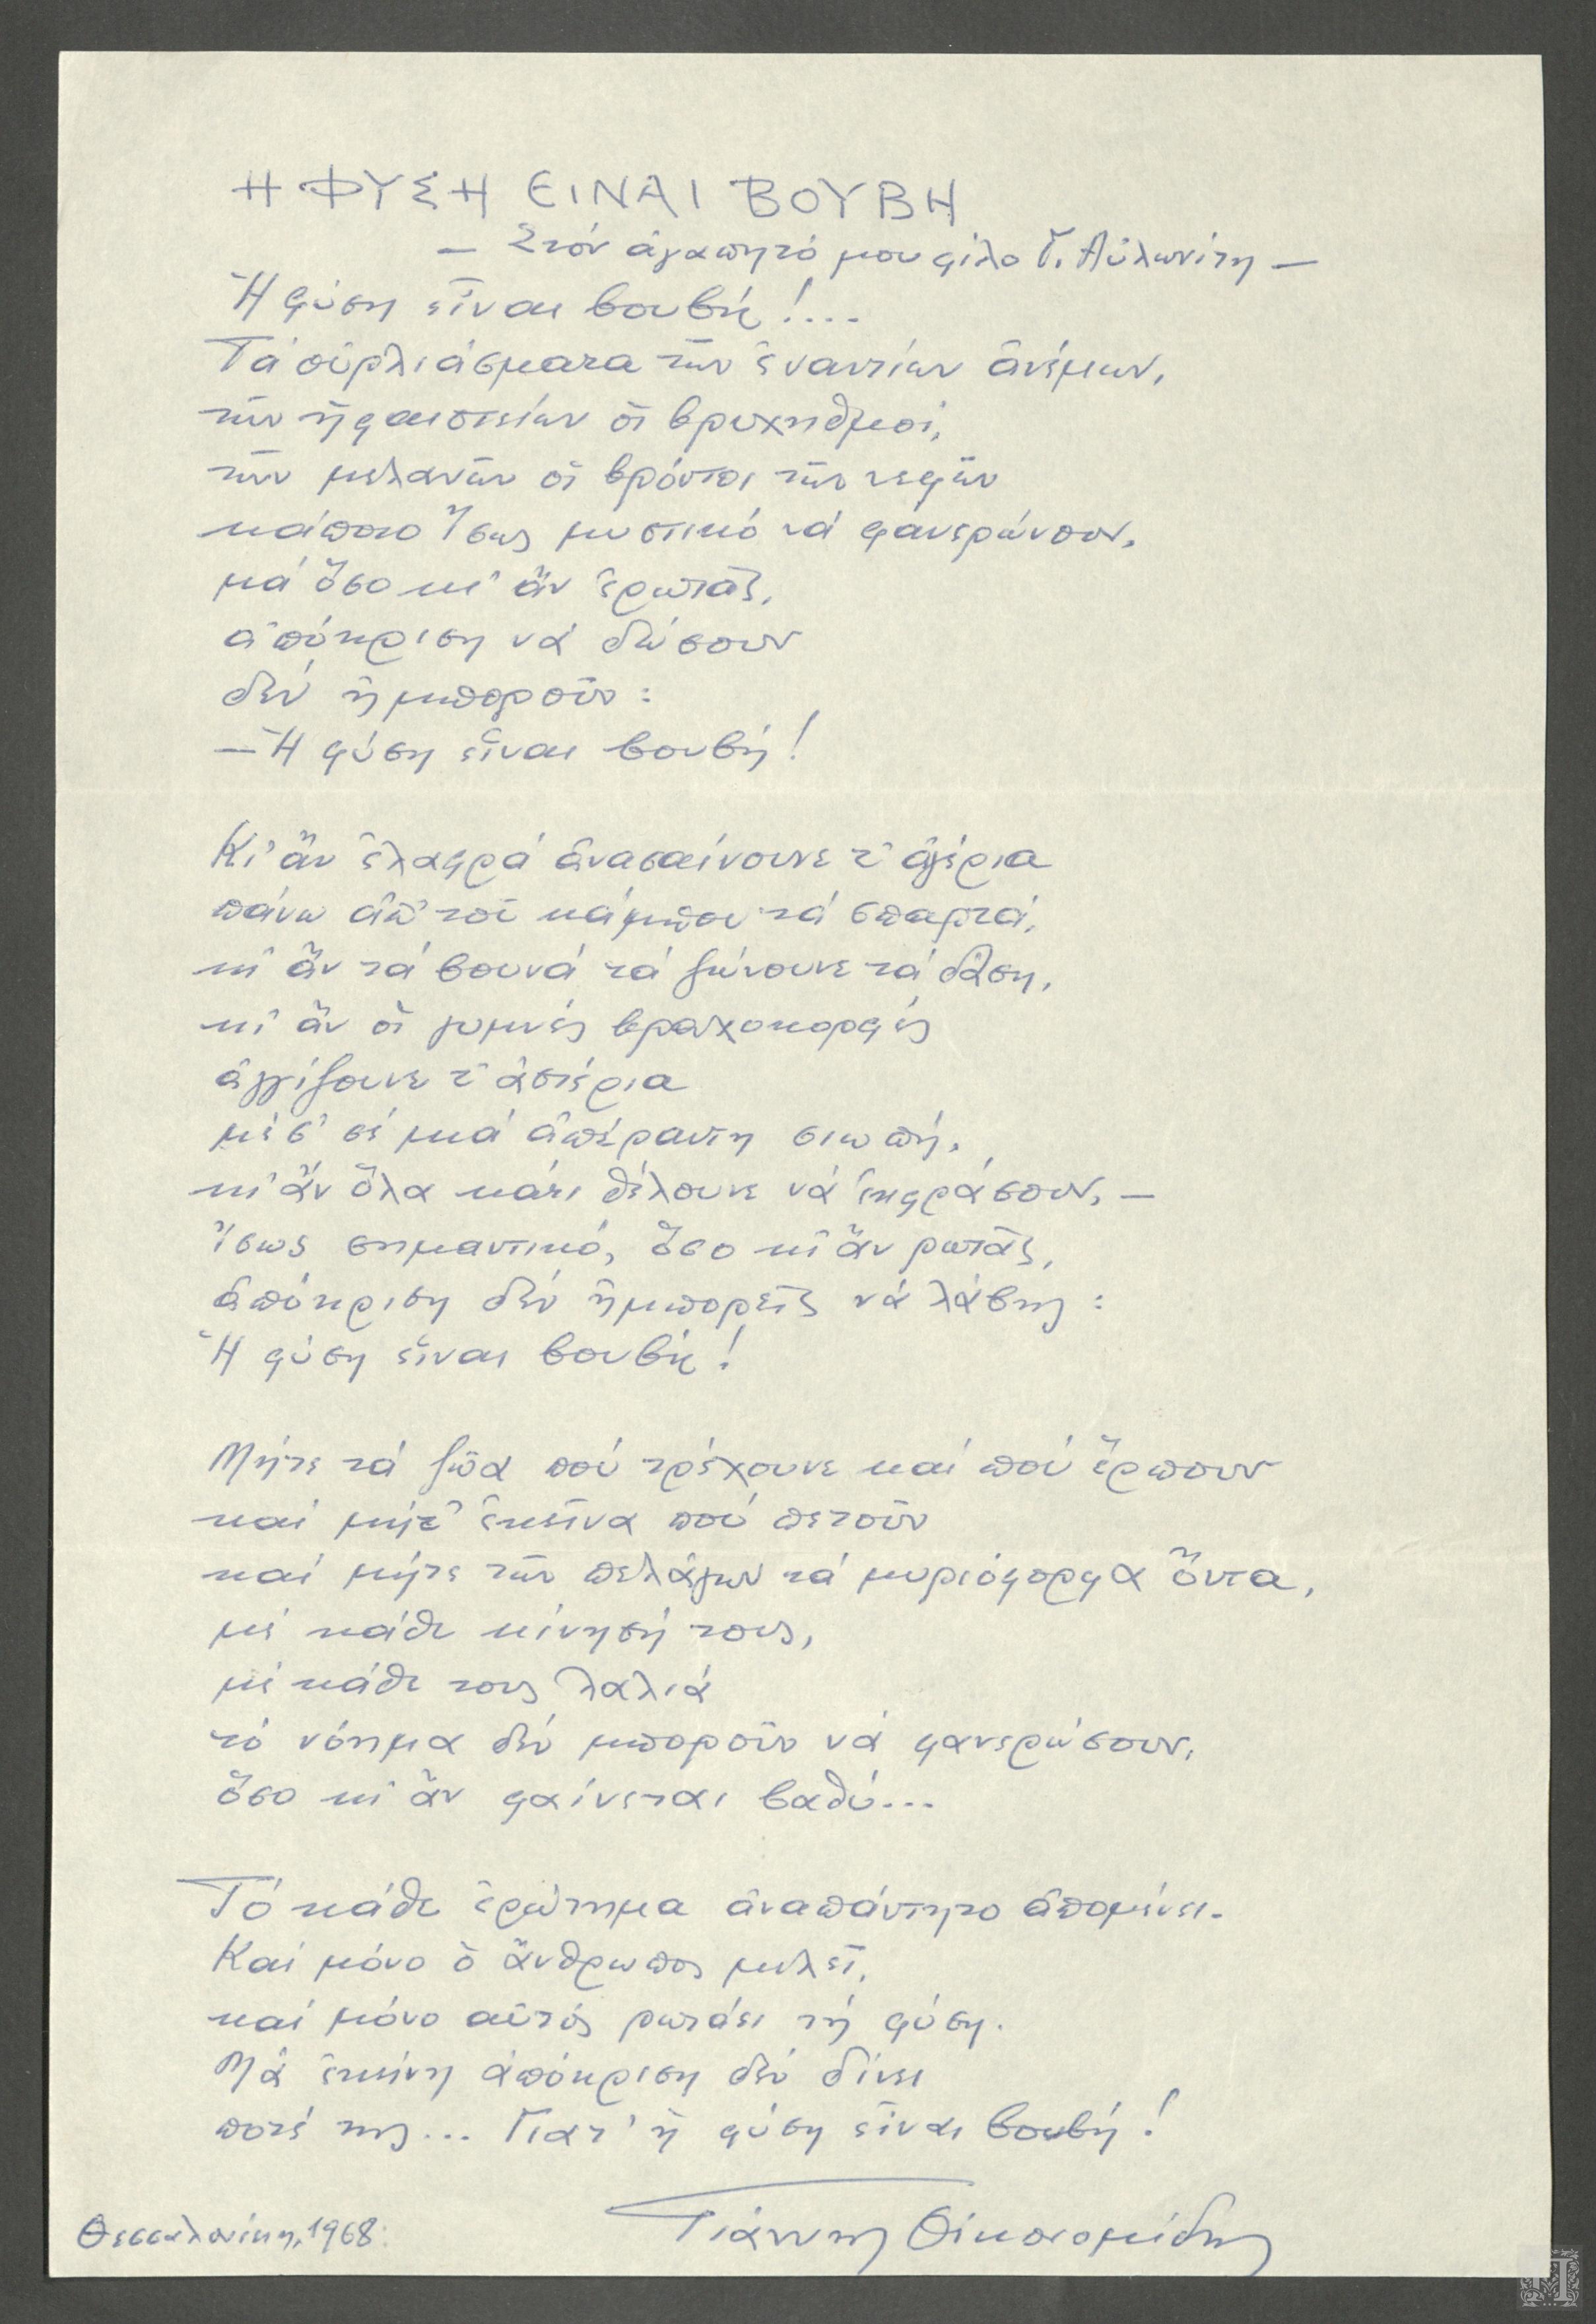 Η ΦΥΣΗ ΕΙΝΑΙ ΒΟΥΒΗ
– Στόν ἀγαπητό μου φίλο Γ. Αὐλωνίτη –
Ἡ φύση εἶναι βουβή!...
Τά οὐρλιάσματα τῶν ἐναντίων ἀνέμων,
τῶν ἡφαιστείων οἱ βρυχηθμοί,
τῶν μελανῶν οἱ βρόντοι τῶν νεφῶν
κάποιο ἴσως μυστικό νά φανερώνουν,
μά ὅσο κι' ἄν ἐρωτᾶς,
ἀπόκριση νά δώσουν
δέν ἠμποροῦν:
– Ἡ φύση εἶναι βουβή!
Κι' ἄν ἐλαφρά ἀνασαίνουνε τ' ἀγέρια
πάνω ἀπ' τοῦ κάμπου τά σπαρτά,
κι' ἄν τά βουνά τά ζώνουνε τά δάση,
κι' ἄν οἱ γυμνές βραχοκορφές
ἀγγίζουνε τ' ἀστέρια
μέσ' σέ μιά ἀπέραντη σιωπή,
κι' ἄν ὅλα κάτι θέλουνε νά ἐκφράσουν, –
ἴσως σημαντικό, ὅσο κι' ἄν ρωτᾶς,
ἀπόκριση δέν ἠμπορεῖς νά λάβης:
Ἡ φύση εἶναι βουβή!
Μήτε τά ζῶα πού τρέχουνε καί πού ἕρπουν
καί μήτ' ἐκεῖνα πού πετοῦν
καί μήτε τῶν πελάγων τά μυριόμορφα ὄντα,
μέ κάθε κίνησή τους,
μέ κάθε τους λαλιά
τό νόημα δέν μποροῦν νά φανερώσουν,
ὅσο κι' ἄν φαίνεται βαθύ...
Τό κάθε ἐρώτημα ἀναπάντητο ἀπομένει.
Καί μόνο ὁ ἄνθρωπος μιλεῖ,
καί μόνο αὐτός ρωτάει τή φύση.
Μά ἐκείνη ἀπόκριση δέν δίνει
ποτέ της... Γιατ' ἡ φύση εἶναι βουβή!
Γιάννης Οἰκονομίδης
Θεσσαλονίκη, 1968.